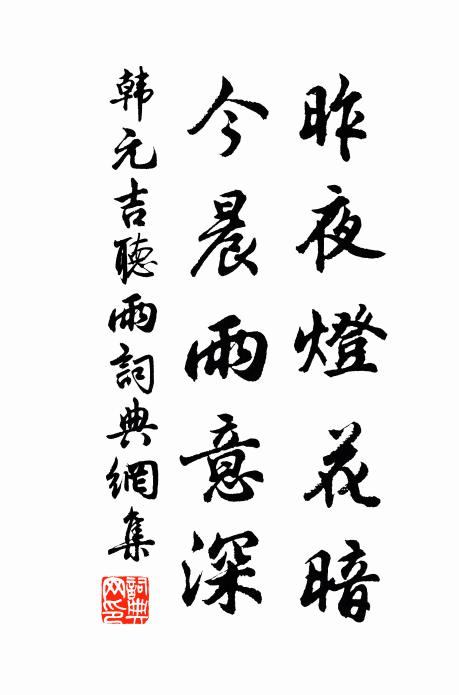 昨夜燈花暗
今晨雨意深
韩元吉聽雨詞典網集
詞典网印